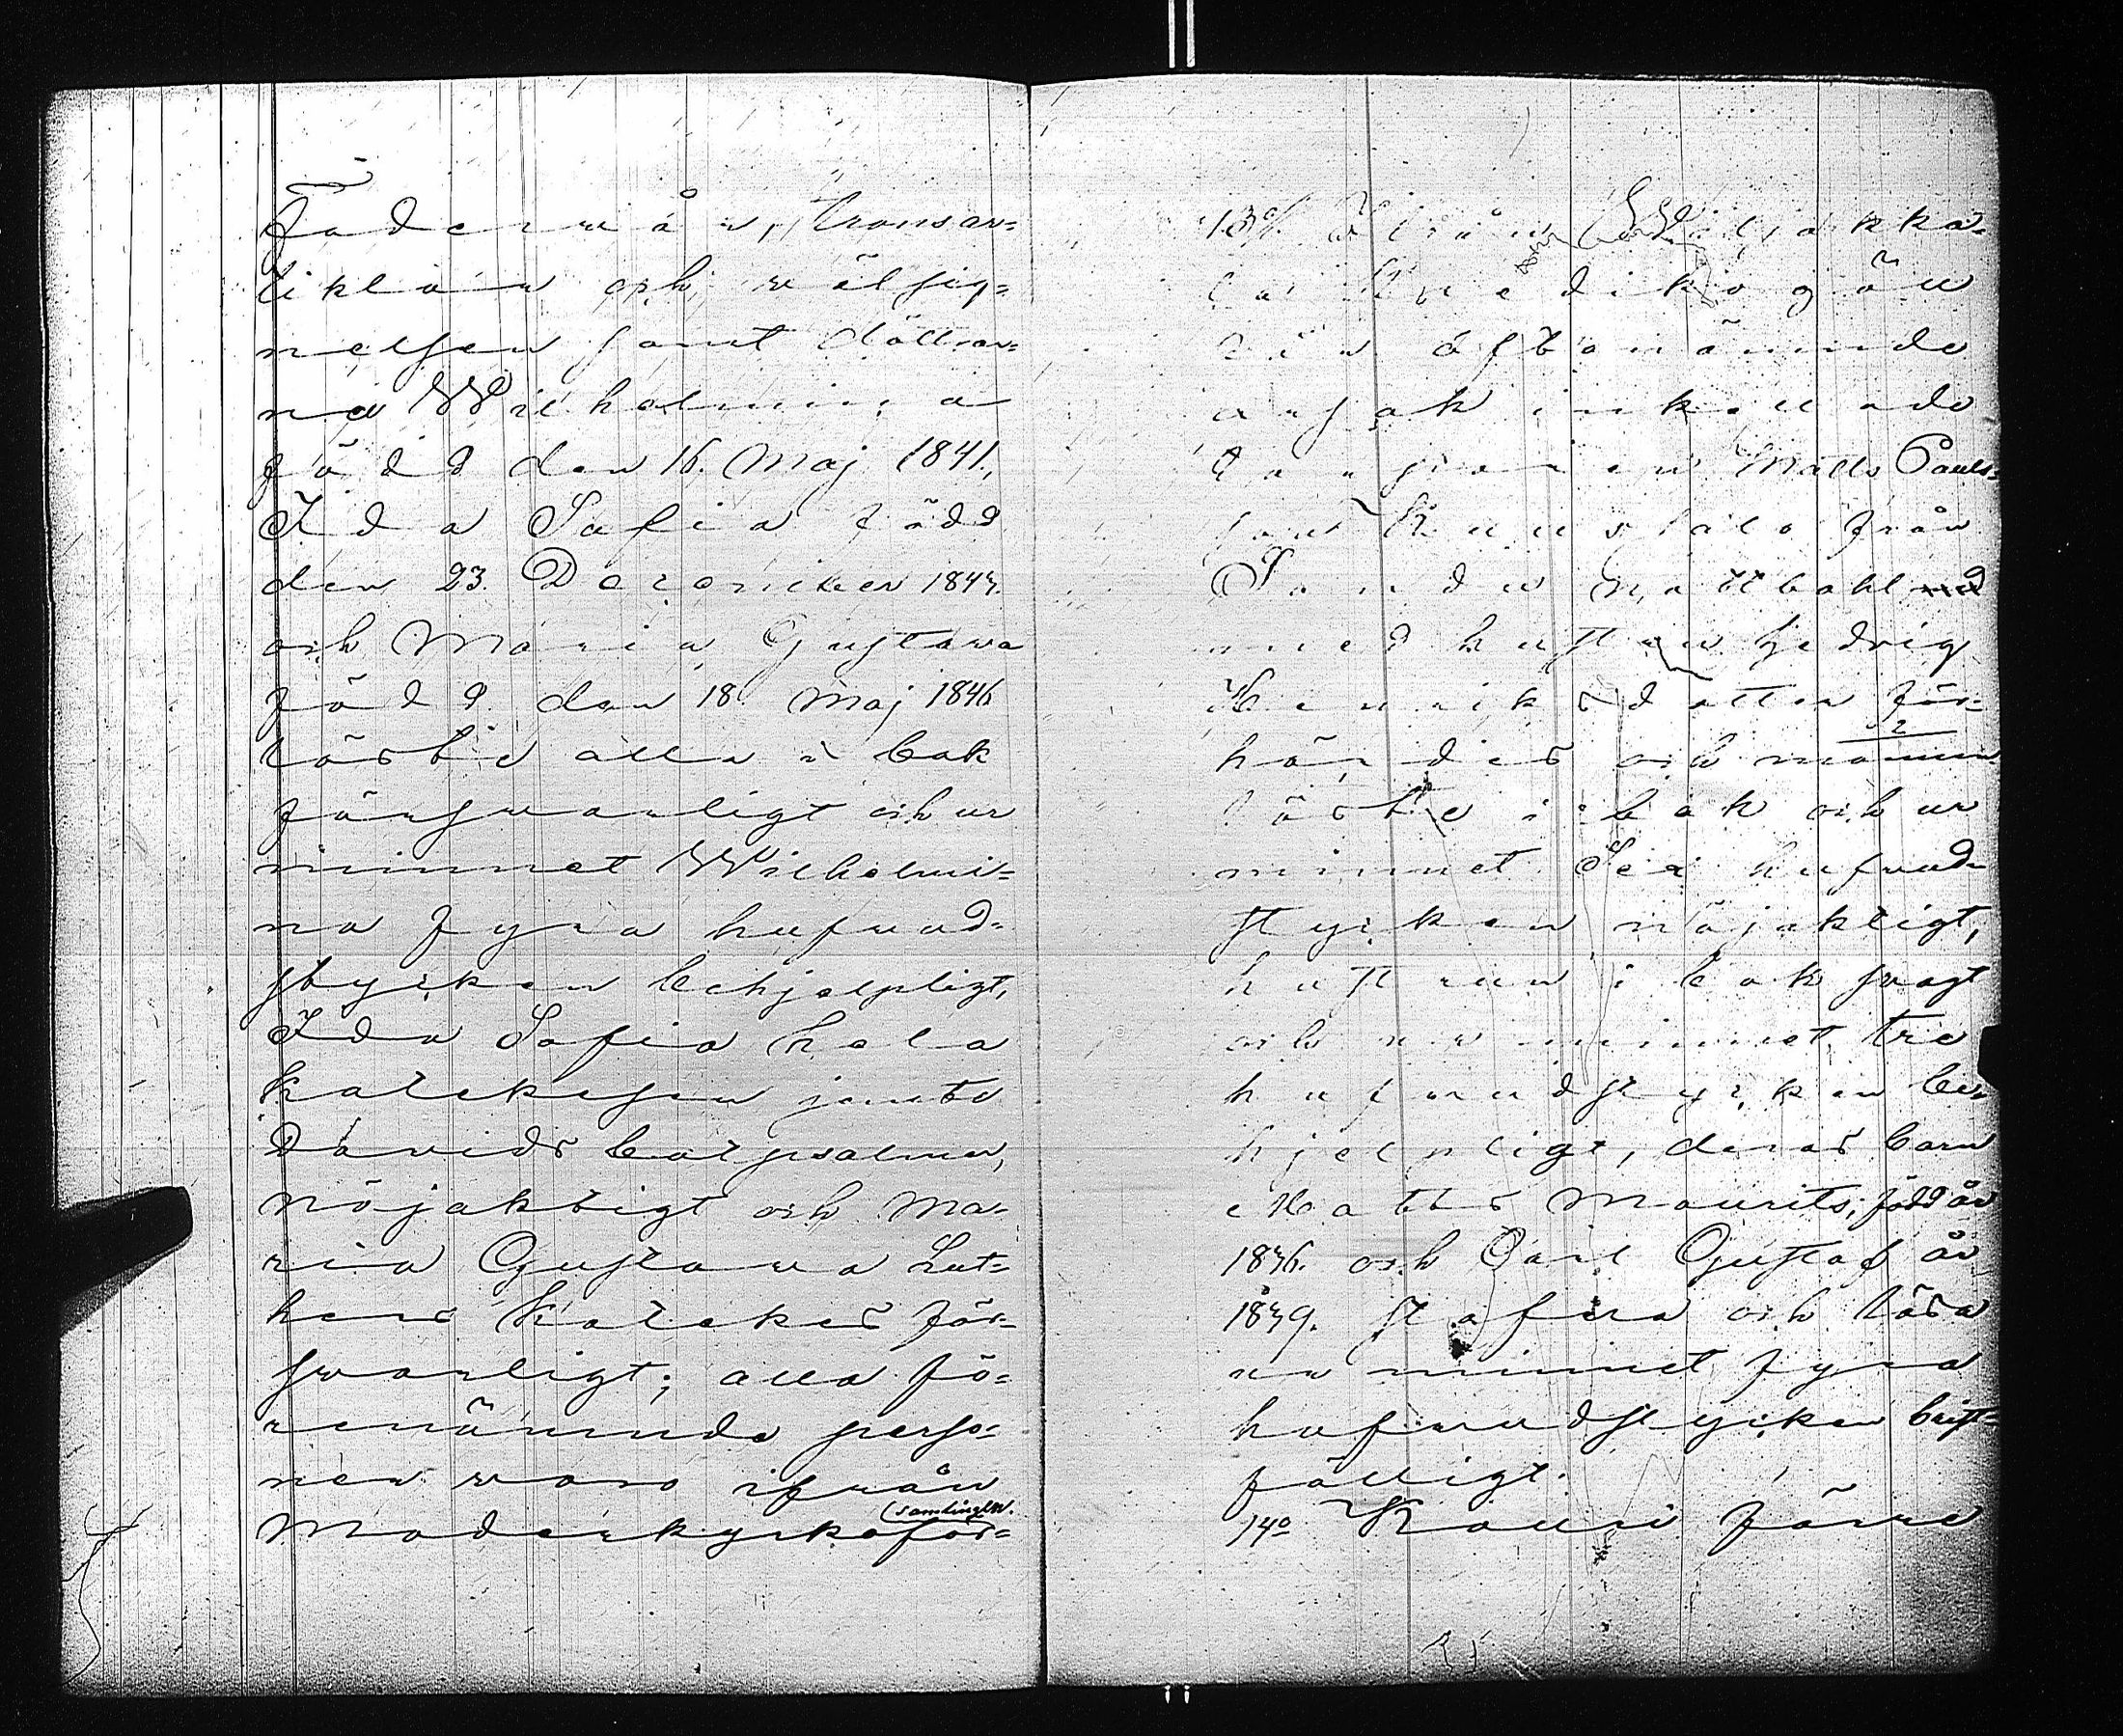 Fader wår, trosar=
tiklarna och wälsig=
nelsen samt döttrar=
na Wilhelmina
född den 16. Maj 1841,
Ida Sofia född
den 23. December 1843.
och Maria Gustava
född den 18. Maj 1846
läste alla i bok
försvarligt och ur
minnet Wilhelmi=
na fyra hufvud=
stycken behjelpligt,
Ida Sofia hela
katekesen jemte
Davids botpsalmer,
nöjaktigt och Ma=
ria Gustava Lut=
hers Katekes för=
svarligt; alla fö=
renämnde perso=
ner voro ifrån
(samlingen.
Moderkyrkoför=
13o
från ofvannämnde
Matts Pauls=
son från
med hustrun Hedvig
Henriksdotter för=
hördes och mannen
läste i bok och ur
minnet Sex hufvud=
stycken nöjaktigt,
hustrun i bok svagt
och ur minnet tre
hufvudstycken be=
hjelpligt, deras barn
Matts Maurits, född år
1836. och Carl Gustaf år
1839. stafva och läsa
ur minnet fyra
hufvudstycken brist=
fälligt.
14o Kauri